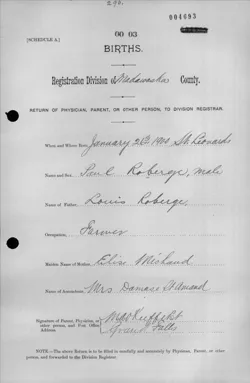 290.
004693
[SCHEDULE A.]
00 03
BIRTHS.
Registration Division of Madawaska County.
RETURN OF PHYSICIAN, PARENT, OR OTHER PERSON, TO DIVISION REGISTRAR.
When and Where Born, January 26th 1900 St. Leonards
Name and Sex, Paul Roberge, male
Name of Father, Louis Roberge,
Occupation, Farmer
Maiden Name of Mother, Elise Michaud
Name of Accoucheur, Mrs Damase St Amand
Signature of Parent, Physician, or
other person, and Post Office
Address,
Grand Falls
NOTE.—The above Return is to be filled in carefully and accurately by Physician, Parent, or other
person, and forwarded to the Division Registrar.